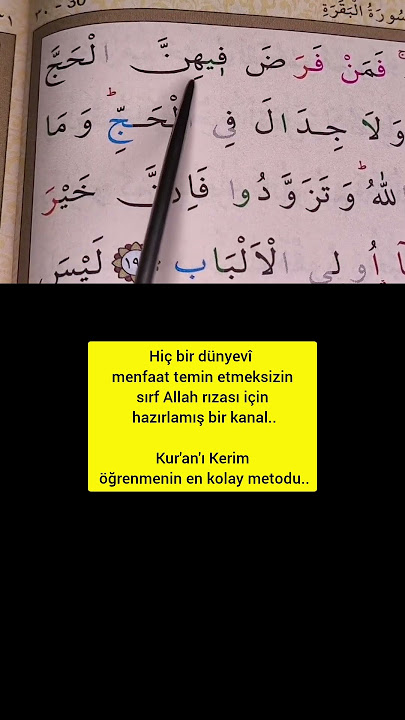 ٣٠ - 30
سُورَةُ الْبَقَرَةِ
فَمَنْ فَرَضَ فٖيهِنَّ الْحَجَّ
وَلَا جِدَالَ فِي الْحَجِّ وَمَا
اللّٰهُ وَتَزَوَّدُوا فَاِنَّ خَيْرَ
اُولِي الْاَلْبَابِ ١٩ لَيْسَ
Hiç bir dünyevî
menfaat temin etmeksizin
sırf Allah rızası için
hazırlamış bir kanal..
Kur'an'ı Kerim
öğrenmenin en kolay metodu..